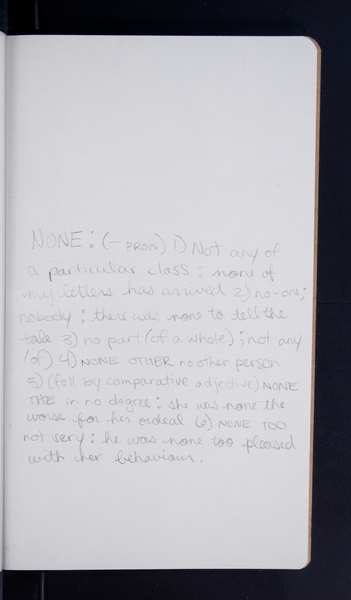 NONE: (- PRON) 1) Not any of
a particular class : none of
my letters has arrived 2) no-one;
nobody : there was none to tell the
tale 3) no part (of a whole) ; not any
(of) 4) NONE OTHER no other person
5) (foll by comparative adjective) NONE
THE in no degree : she was none the
worse for her ordeal 6) NONE TOO
not very : he was none too pleased
with her behaviour.